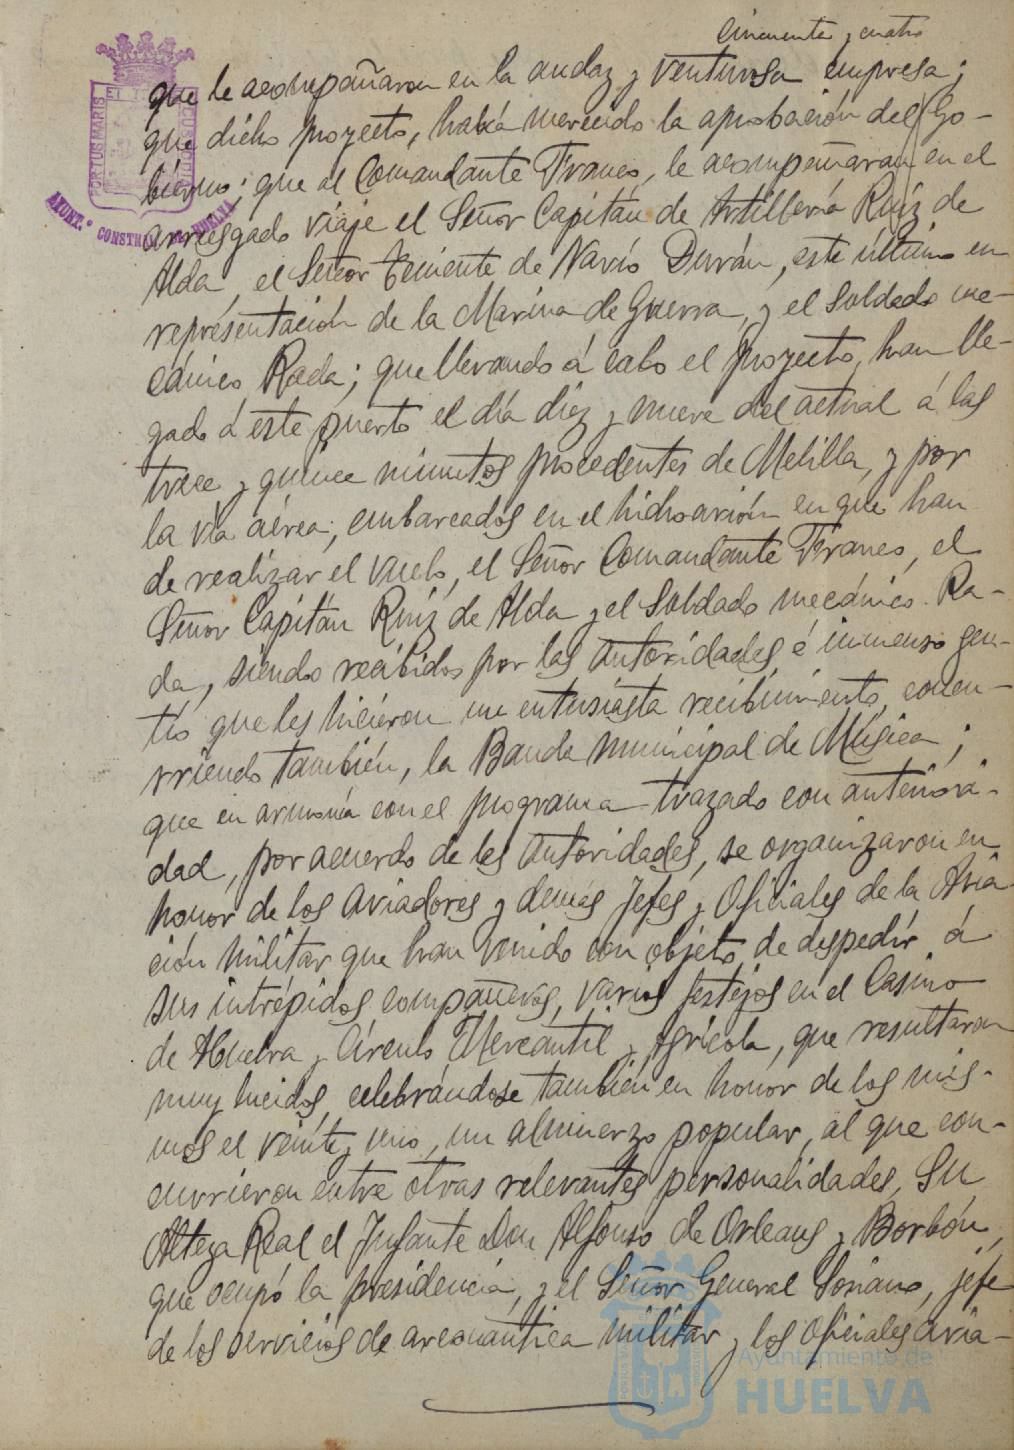 cincuenta y cuatro
que le acompañaron en la audaz y venturosa empresa;
que dicho proyecto, había merecido la aprobación del Go-
bierno; que al Comandante Franco, le acompañaran en el
arriesgado viaje el Señor Capitán de Artillería Ruíz de
Alda, el Señor Teniente de Navío Durán, este último en
representación de la Marina de Guerra, y el Soldado me-
cánico Rada; que llevando á cabo el proyecto, han lle-
gado á este puerto el día diez y nueve del actual á las
trece y quince minutos procedentes de Melilla, y por
la vía aérea, embarcados en el hidroavión en que han
de realizar el vuelo, el Señor Comandante Franco, el
Señor Capitán Ruíz de Alda y el Soldado mecánico Ra-
da, siendo recibidos por las Autoridades é inmenso gen-
tío que les hicieron un entusiasta recibimiento, concu-
rriendo también, la Banda Municipal de Música;
que en armonía con el programa trazado con anteriori-
dad, por acuerdo de las Autoridades, se organizaron en
honor de los Aviadores y demás Jefes y Oficiales de la Avia
ción militar que han venido con objeto de despedir á
sus intrépidos compañeros, varios festejos en el Casino
de Huelva y Círculo Mercantil y Agrícola, que resultaron
muy lucidos, celebrándose también en honor de los mis-
mos el veinte y uno, un almuerzo popular, al que con-
currieron entre otras relevantes personalidades, Su
Alteza Real el Infante Don Alfonso de Orleans y Borbón,
que ocupó la presidencia, y el Señor General Soriano, jefe
de los servicios de areonautica militar y los oficiales avia-
PORTUS MARIS ET
CUSTODIA
AYUNT.º CONSTITUCIONAL DE HUELVA
Ayuntamiento de
HUELVA